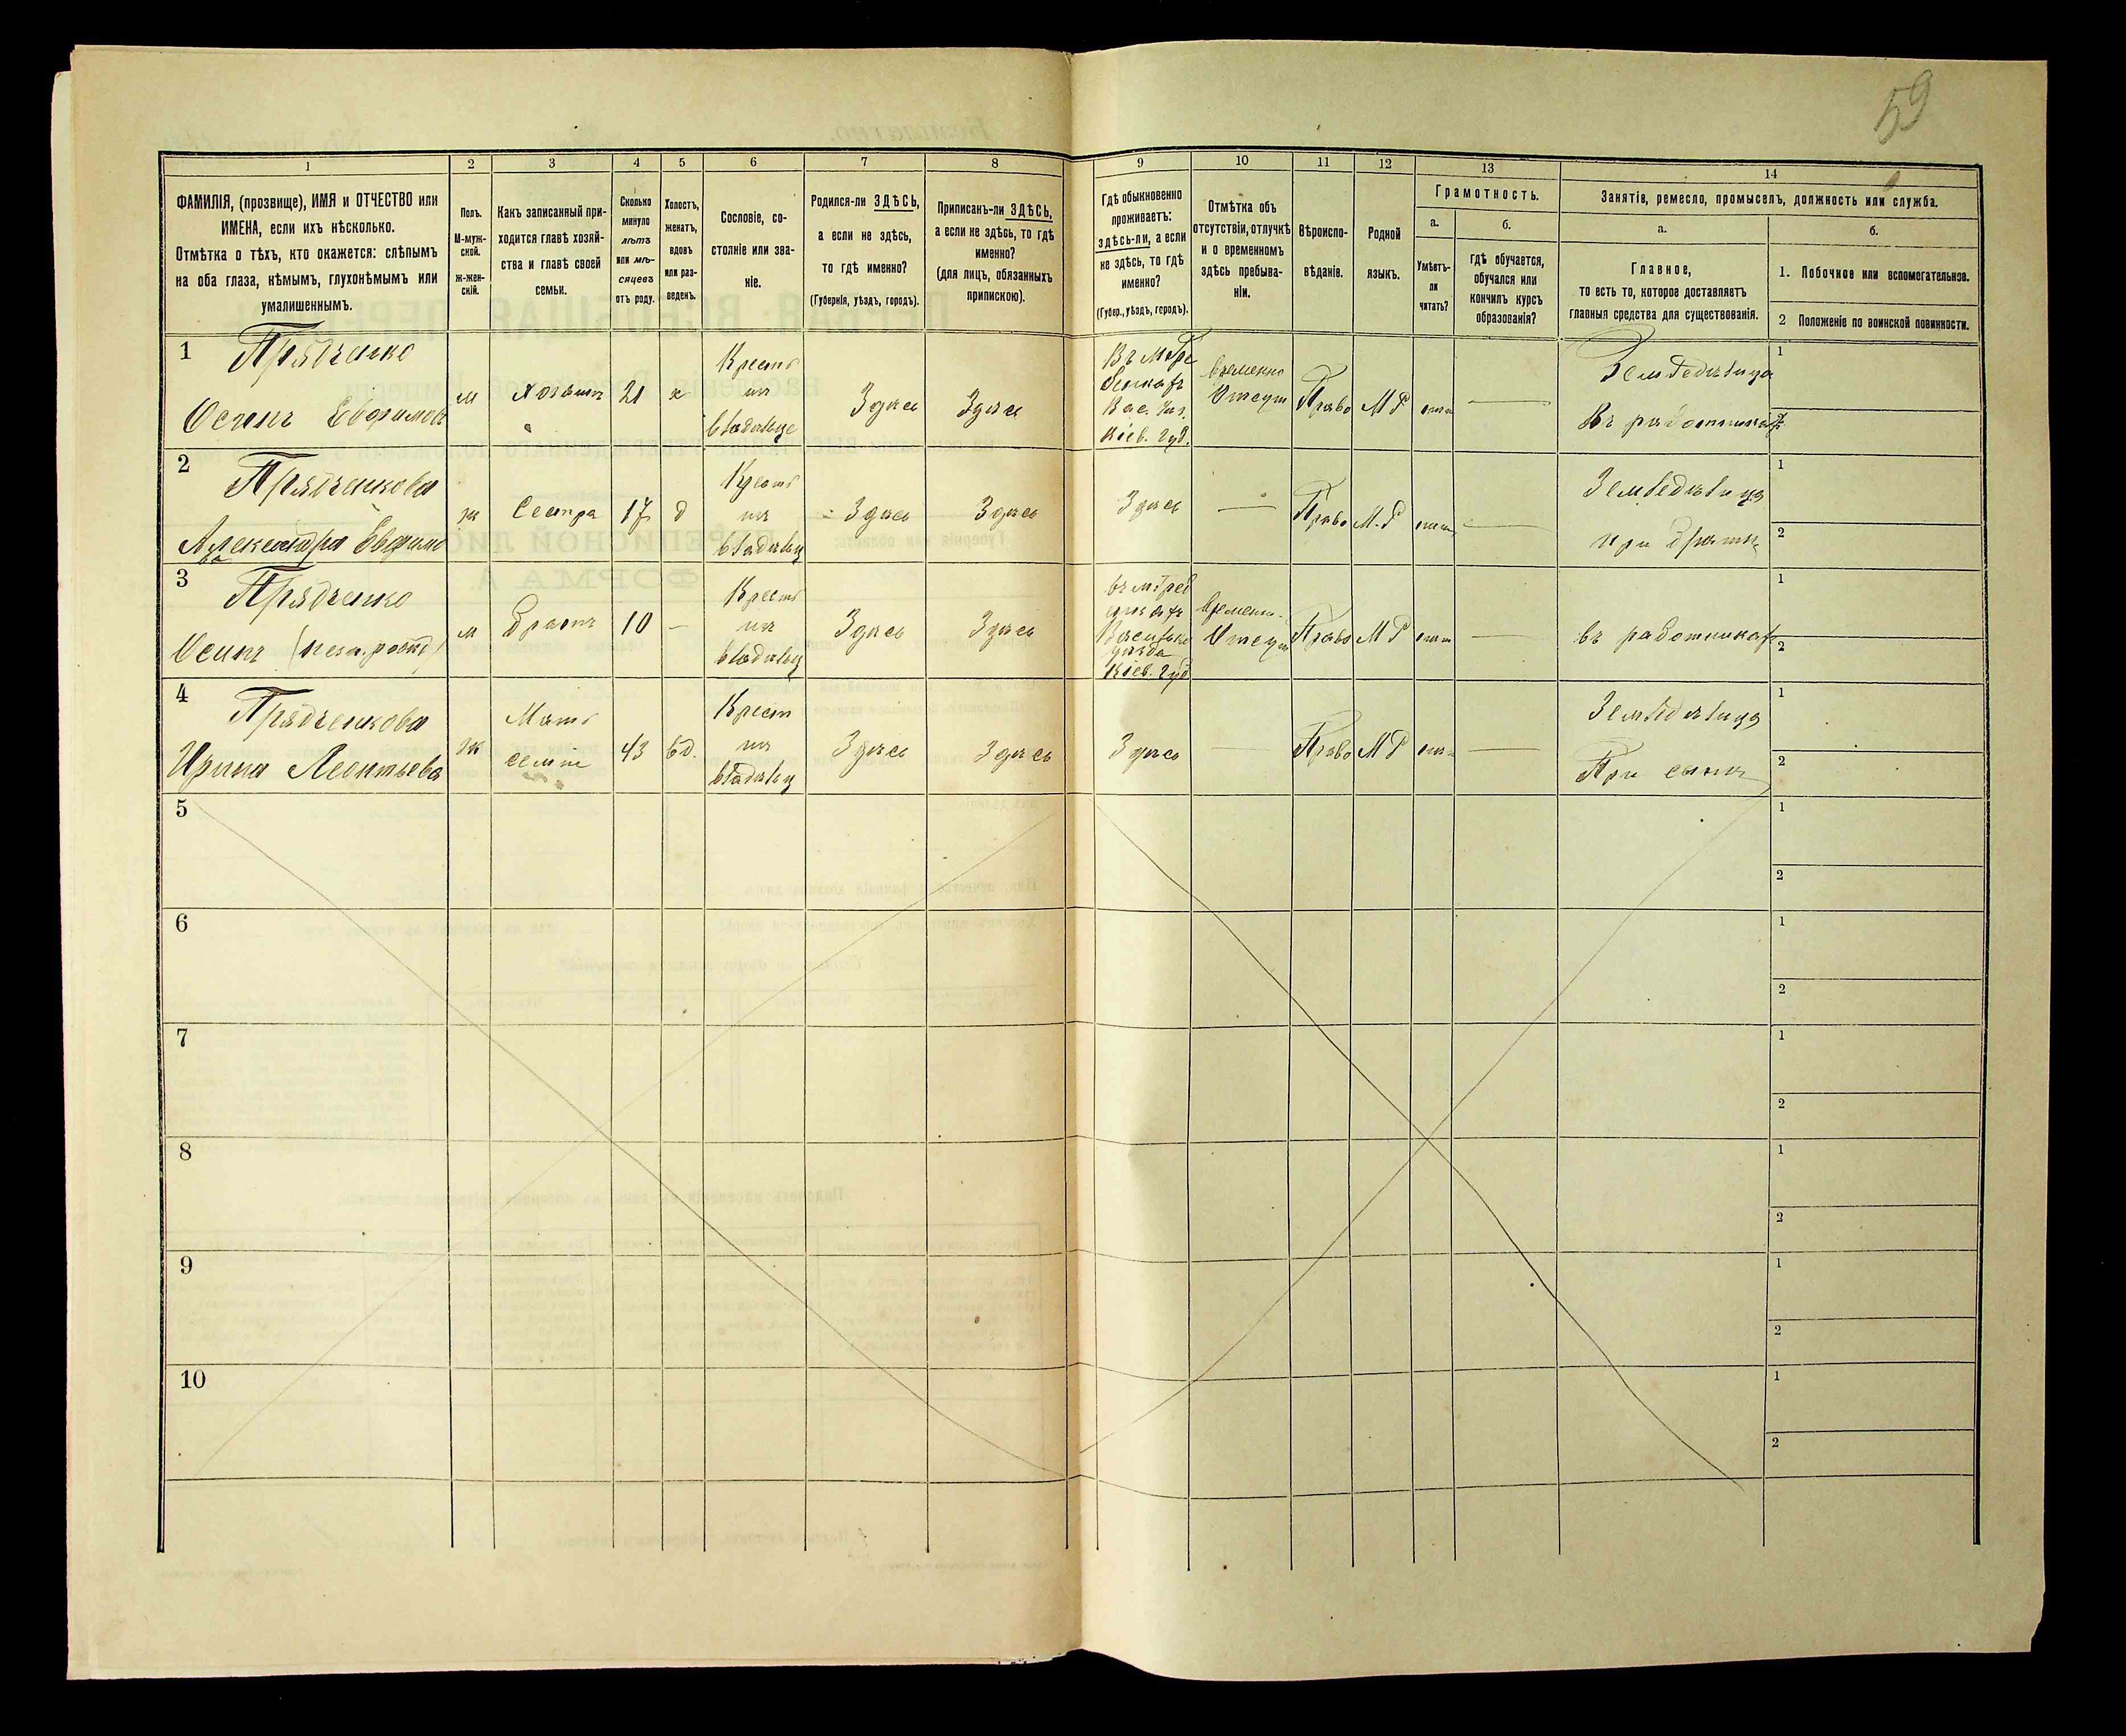 59
1 2 3 4 5 6 7 8 9 10 11 12 13 14
ФАМИЛІЯ, (прозвище), ИМЯ и ОТЧЕСТВО или
ИМЕНА, если ихъ нѣсколько.
Отмѣтка о тѣхъ, кто окажется: слѣпымъ
на оба глаза, нѣмымъ, глухонѣмымъ или
умалишеннымъ.
Полъ.
М-муж-
ской.
ж-жен-
скій.
Какъ записанный при-
ходится главѣ хозяй-
ства и главѣ своей
семьи.
Сколько
минуло
лѣтъ
или мѣ-
сяцевъ
отъ роду.
Холостъ,
женатъ,
вдовъ
или раз-
веденъ.
Сословіе, со-
стояніе или зва-
ніе.
Родился-ли ЗДѢСЬ,
а если не здѣсь,
то гдѣ именно?
(Губернія, уѣздъ, городъ).
Приписанъ-ли ЗДѢСЬ,
а если не здѣсь, то гдѣ
именно?
(для лицъ, обязанныхъ
припискою).
Гдѣ обыкновенно
проживаетъ:
здѣсь-ли, а если
не здѣсь, то гдѣ
именно?
(Губер., уѣздъ, городъ).
Отмѣтка объ
отсутствіи, отлучкѣ
и о временномъ
здѣсь пребыва-
ніи.
Вѣроиспо-
вѣданіе.
Родной
языкъ.
Грамотность.
а.
Умѣетъ-
ли
читать?
б.
гдѣ обучается,
обучался или
кончилъ курсъ
образованія?
Занятія, ремесло, промыселъ, должность или служба.
а.
Главное,
то есть то, которое доставляетъ
главныя средства для существованія.
б.
1. Побочное или вспомогательное.
2 Положеніе по воинской повинности.
1 Прядченко
Осипъ Евфимовъ
м
Хозяинъ
21
х
Крестъ
изъ
владѣльце
Здѣсь
Здѣсь
Въ м Гре
бенкахъ
Вас. уѣз.
Кіев. губ.
Временно
Отсут
Право
М Р
нѣтъ
Земледѣлица
Въ работникахъ
1
2
2 Прядченкова
Александра Евфимо
ва
ж
Сестра
17
д
Крестъ
изъ
владѣльц
Здѣсь
Здѣсь
Здѣсь
Право
М. Р
нѣтъ
Земледѣлица
при братѣ
1
2
3 Прядченко
Осипъ
м
Братъ
10
Крестъ
изъ
владѣльц
Здѣсь
Здѣсь
въ м Греб
енкахъ
Васильк
уѣзда
Кіев. губ
Временн.
Отсут
Право
М Р
нѣтъ
въ работникахъ
1
2
4 Прядченкова
Ирина Леонтьева
ж
Мать
семьи
43
вд.
Крест
изъ
владѣльц
Здѣсь
Здѣсь
Здѣсь
Право
М Р
нѣтъ
Земледѣлица
При сынѣ
1
2
5
1
2
6
1
2
7
1
2
8
1
2
9
1
2
10
1
2